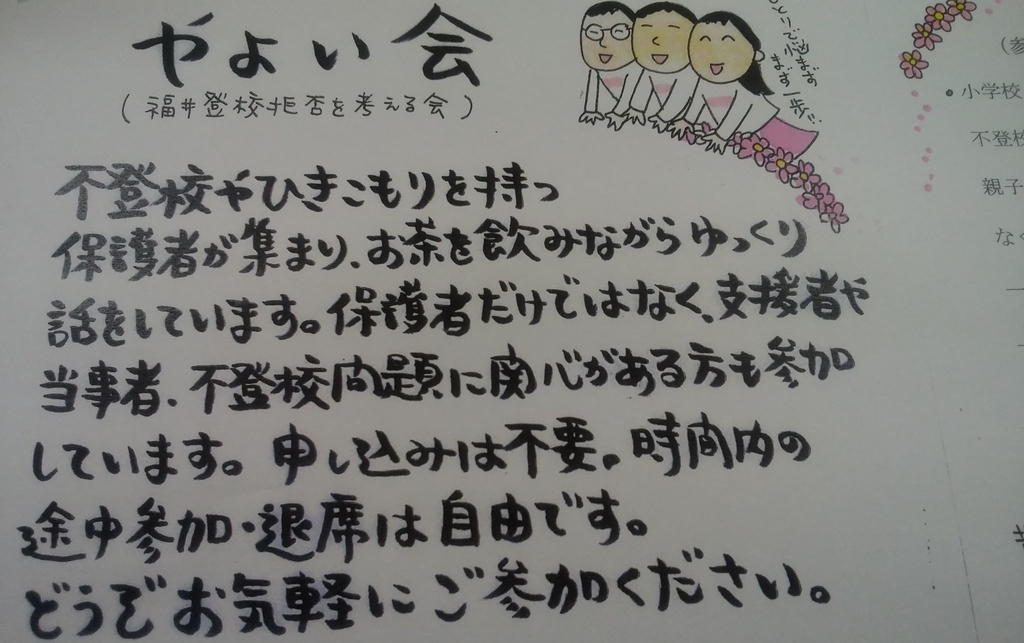 やよい会
(福井登校拒否を考える会)
ひとりで悩まず
まず一歩!!
不登校やひきこもりを持つ
保護者が集まり、お茶を飲みながらゆっくり
話をしています。保護者だけではなく、支援者や
当事者、不登校問題に関心がある方も参加
しています。申し込みは不要。時間内の
途中参加・退席は自由です。
どうぞお気軽にご参加ください。
(参
・小学校
不登校
親子
な